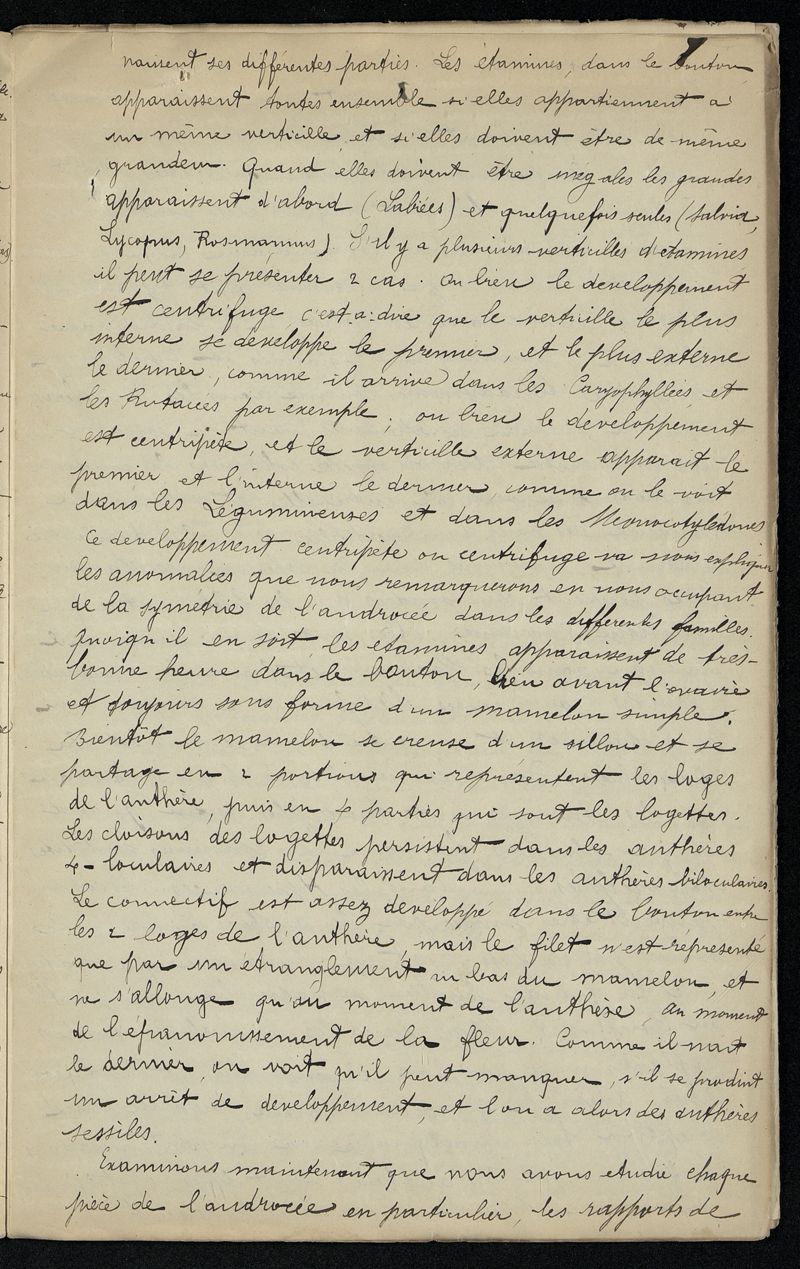 naissent ses différentes parties. Les étamines, dans le bouton
apparaissent toutes ensemble si elles appartiennent a
un même verticille et si elles doivent être de même
grandeur. Quand elles doivent être inégales les grandes
apparaissent d'abord (Labiées) et quelquefois seules (Salvia,
Lycopus, Rosmarinus). S'il y a plusieurs verticilles d'etamines
il peut se présenter 2 cas. Ou bien le developpement
est centrifuge c'est-a-dire que le verticille le plus
interne se developpe le premier, et le plus externe
le dernier, comme il arrive dans les Caryophyllées et
les Rutacées par exemple; ou bien le developpement
est centripète, et le verticille externe apparait le
premier et l'interne le dernier, comme on le voit
dans les Légumineuses et dans les Monocotylédones
Ce developpement centripète ou centrifuge va nous expliquer
les anomalies que nous remarquerons en nous occupant
de la symétrie de l'androcée dans les differentes familles.
Quoiqu'il en soit, les etamines apparaissent de très-
bonne heure dans le bouton, bien avant l'ovaire
et toujours sous forme d'un mamelon simple.
Bientôt le mamelon se creuse d'un sillon et se
partage en 2 portions qui représentent les loges
de l'anthère, puis en 4 parties qui sont les logettes.
Les cloisons des logettes persistent dans les anthères
4-loculaires et disparaissent dans les anthères biloculaires.
Le connectif est assez developpé dans le bouton entre
les 2 loges de l'anthère, mais le filet n'est représenté
que par un étranglement au bas du mamelon, et
ne s'allonge qu'au moment de l'anthèse, au moment
de l'épanouissement de la fleur. Comme il nait
le dernier, on voit qu'il peut manquer, s'il se produit
un arrêt de developpement, et l'on a alors des anthères
sessiles.
Examinons maintenant que nous avons etudié chaque
pièce de l'androcée en particulier, les rapports de